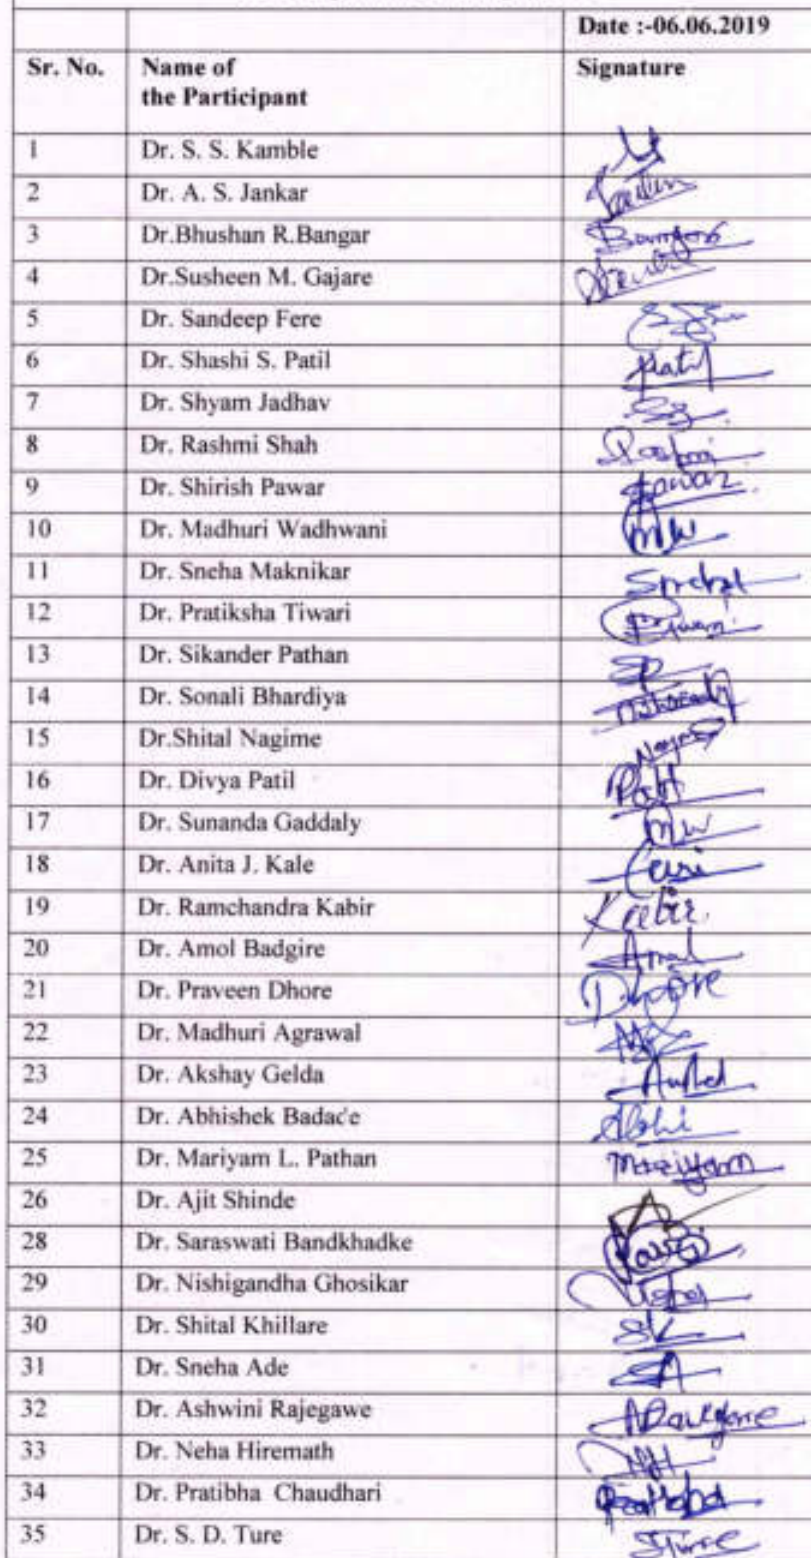 Date :-06.06.2019
Sr. No. Name of the Participant Signature
1 Dr. S. S. Kamble
2 Dr. A. S. Jankar
3 Dr.Bhushan R.Bangar
4 Dr.Susheen M. Gajare
5 Dr. Sandeep Fere
6 Dr. Shashi S. Patil Patil
7 Dr. Shyam Jadhav
8 Dr. Rashmi Shah
9 Dr. Shirish Pawar Pawar
10 Dr. Madhuri Wadhwani MW
11 Dr. Sneha Maknikar
12 Dr. Pratiksha Tiwari
13 Dr. Sikander Pathan SP
14 Dr. Sonali Bhardiya
15 Dr.Shital Nagime
16 Dr. Divya Patil
17 Dr. Sunanda Gaddaly
18 Dr. Anita J. Kale
19 Dr. Ramchandra Kabir Kabir
20 Dr. Amol Badgire Amol
21 Dr. Praveen Dhore Dhore
22 Dr. Madhuri Agrawal
23 Dr. Akshay Gelda
24 Dr. Abhishek Badace Abhi
25 Dr. Mariyam L. Pathan Mariyam
26 Dr. Ajit Shinde
28 Dr. Saraswati Bandkhadke
29 Dr. Nishigandha Ghosikar
30 Dr. Shital Khillare SK
31 Dr. Sneha Ade SA
32 Dr. Ashwini Rajegawe
33 Dr. Neha Hiremath
34 Dr. Pratibha Chaudhari
35 Dr. S. D. Ture STure